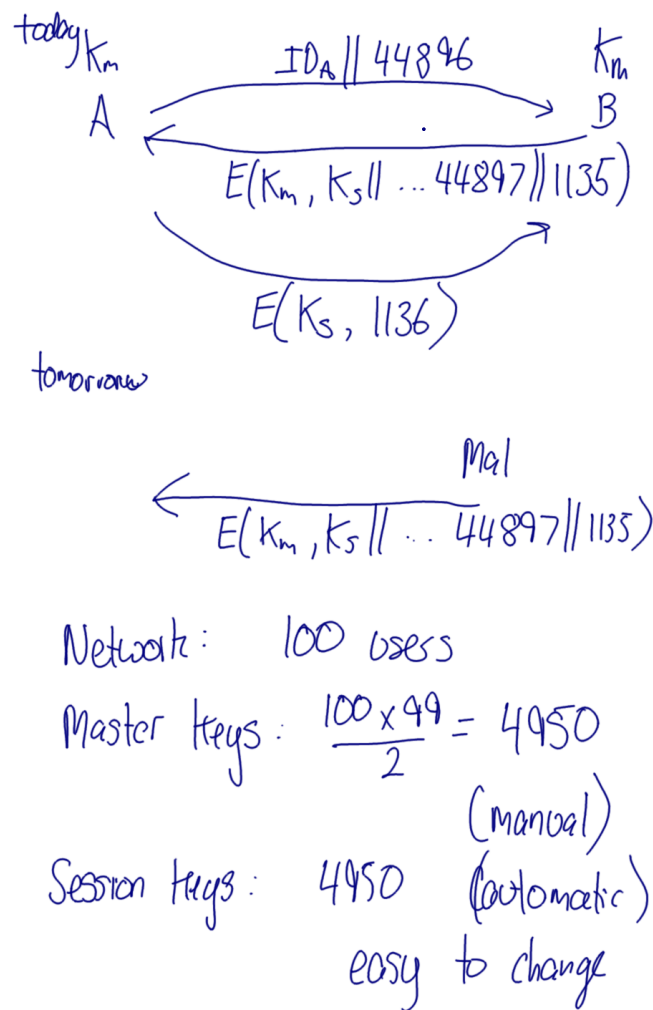 today
Km IDA || 44896 Km
A B
E(Km, Ks || ... 44897 || 1135)
E(Ks, 1136)
tomorrow
Mal
E(Km, Ks || ... 44897 || 1135)
Network: 100 users
Master keys: 100 x 99 / 2 = 4950
(manual)
Session keys: 4950 (automatic)
easy to change